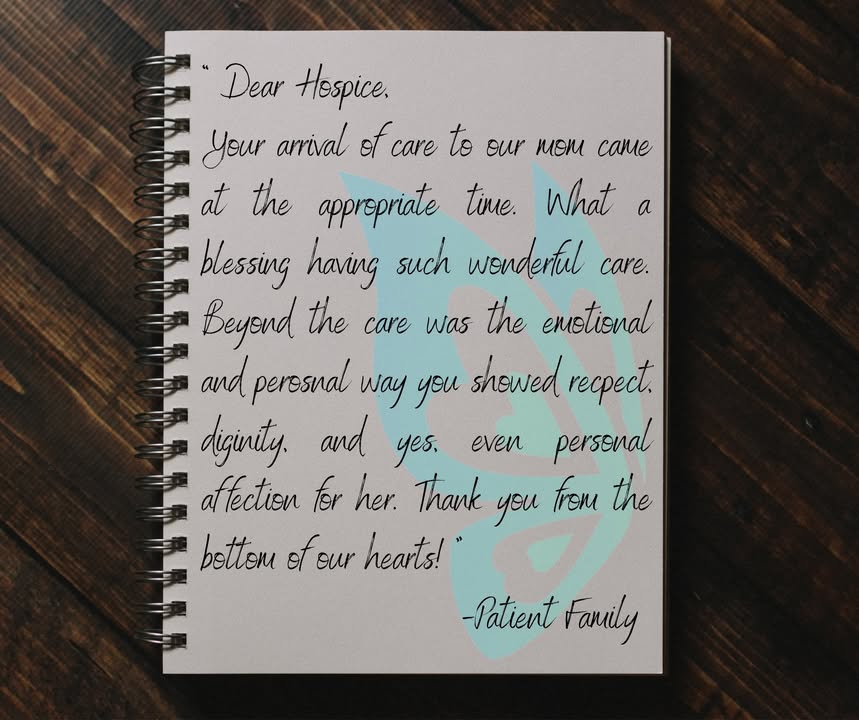 “ Dear Hospice,
Your arrival of care to our mom came
at the appropriate time. What a
blessing having such wonderful care.
Beyond the care was the emotional
and perosnal way you showed recpect,
diginity, and yes, even personal
affection for her. Thank you from the
bottom of our hearts! ”
-Patient Family